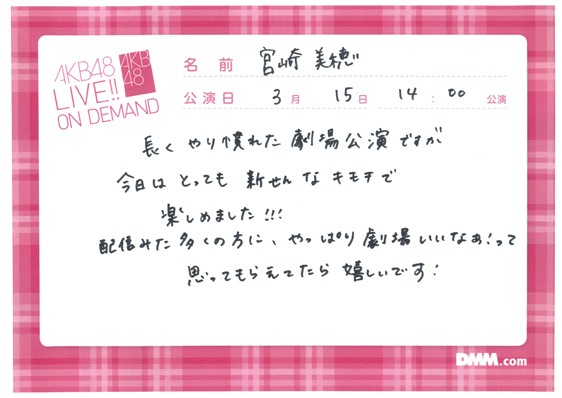 AKB48
LIVE!!
ON DEMAND
AKB
48
名前 宮崎 美穂
公演日 3月 15日 14:00 公演
長く やり慣れた 劇場公演ですが
今日は とっても 新せんな キモチで
楽しめました!!!
配信みた多くの方に、やっぱり劇場いいなぁ!って
思ってもらえてたら 嬉しいです!
DMM.com